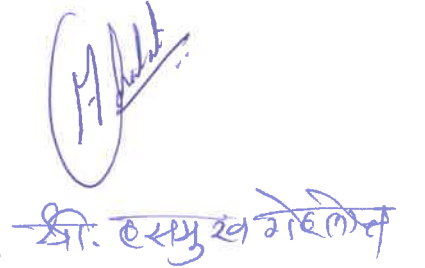 श्री. हसमुख गेहलोत